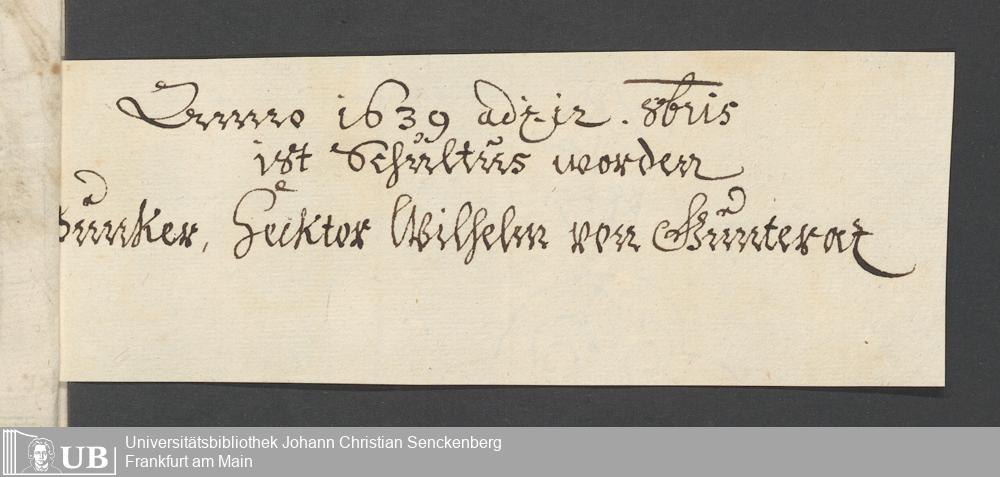 Anno 1639 adj 12. 8bris
ist Schultus worden
Junker, Hecktor Wilhelm von Günterat
Universitätsbibliothek Johann Christian Senckenberg
Frankfurt am Main
UB